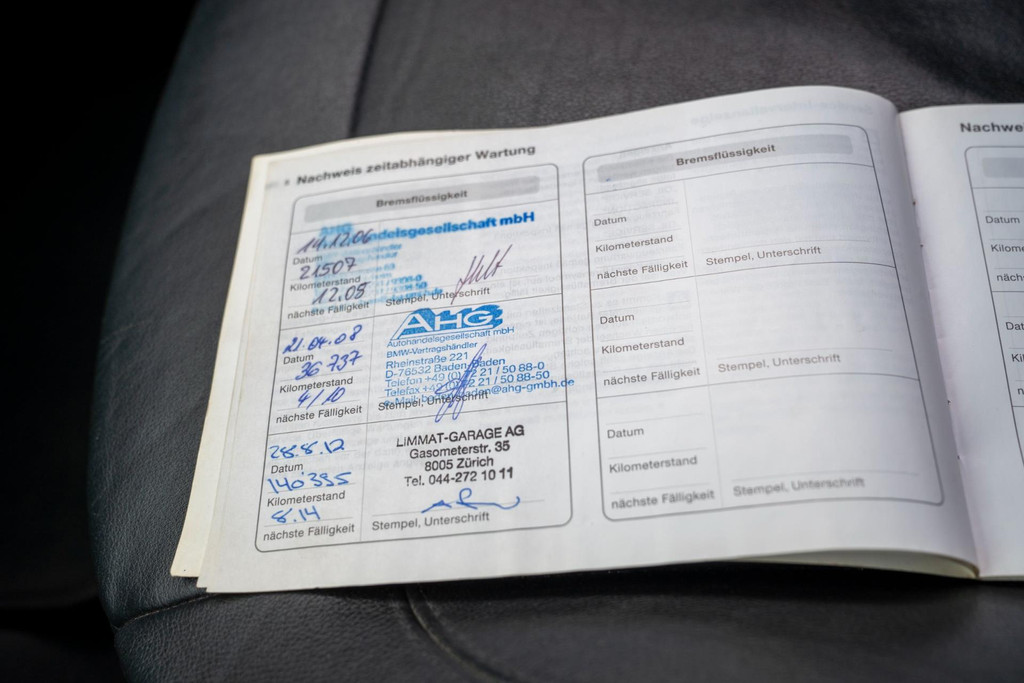 Nachweis zeitabhängiger Wartung
Bremsflüssigkeit
AHG
14.12.06
handelsgesellschaft mbH
Datum
21507
Kilometerstand
12.08
nächste Fälligkeit
Stempel, Unterschrift
AHG
21.04.08
Autohandelsgesellschaft mbH
Datum
BMW-Vertragshändler
36 737
Rheinstraße 221
D-76532 Baden-Baden
Kilometerstand
Telefon +49 (0) 72 21 / 50 88-0
4/10
Telefax +49 (0) 72 21 / 50 88-50
e-Mail: baden-baden@ahg-gmbh.de
nächste Fälligkeit
Stempel, Unterschrift
28.8.12
LIMMAT-GARAGE AG
Datum
Gasometerstr. 35
140'335
8005 Zürich
Kilometerstand
Tel. 044-272 10 11
8.14
nächste Fälligkeit
Stempel, Unterschrift
Bremsflüssigkeit
Datum
Kilometerstand
nächste Fälligkeit
Stempel, Unterschrift
Datum
Kilometerstand
nächste Fälligkeit
Stempel, Unterschrift
Datum
Kilometerstand
nächste Fälligkeit
Stempel, Unterschrift
Nachwe
Datum
Kilome
nächst
Datu
Kilor